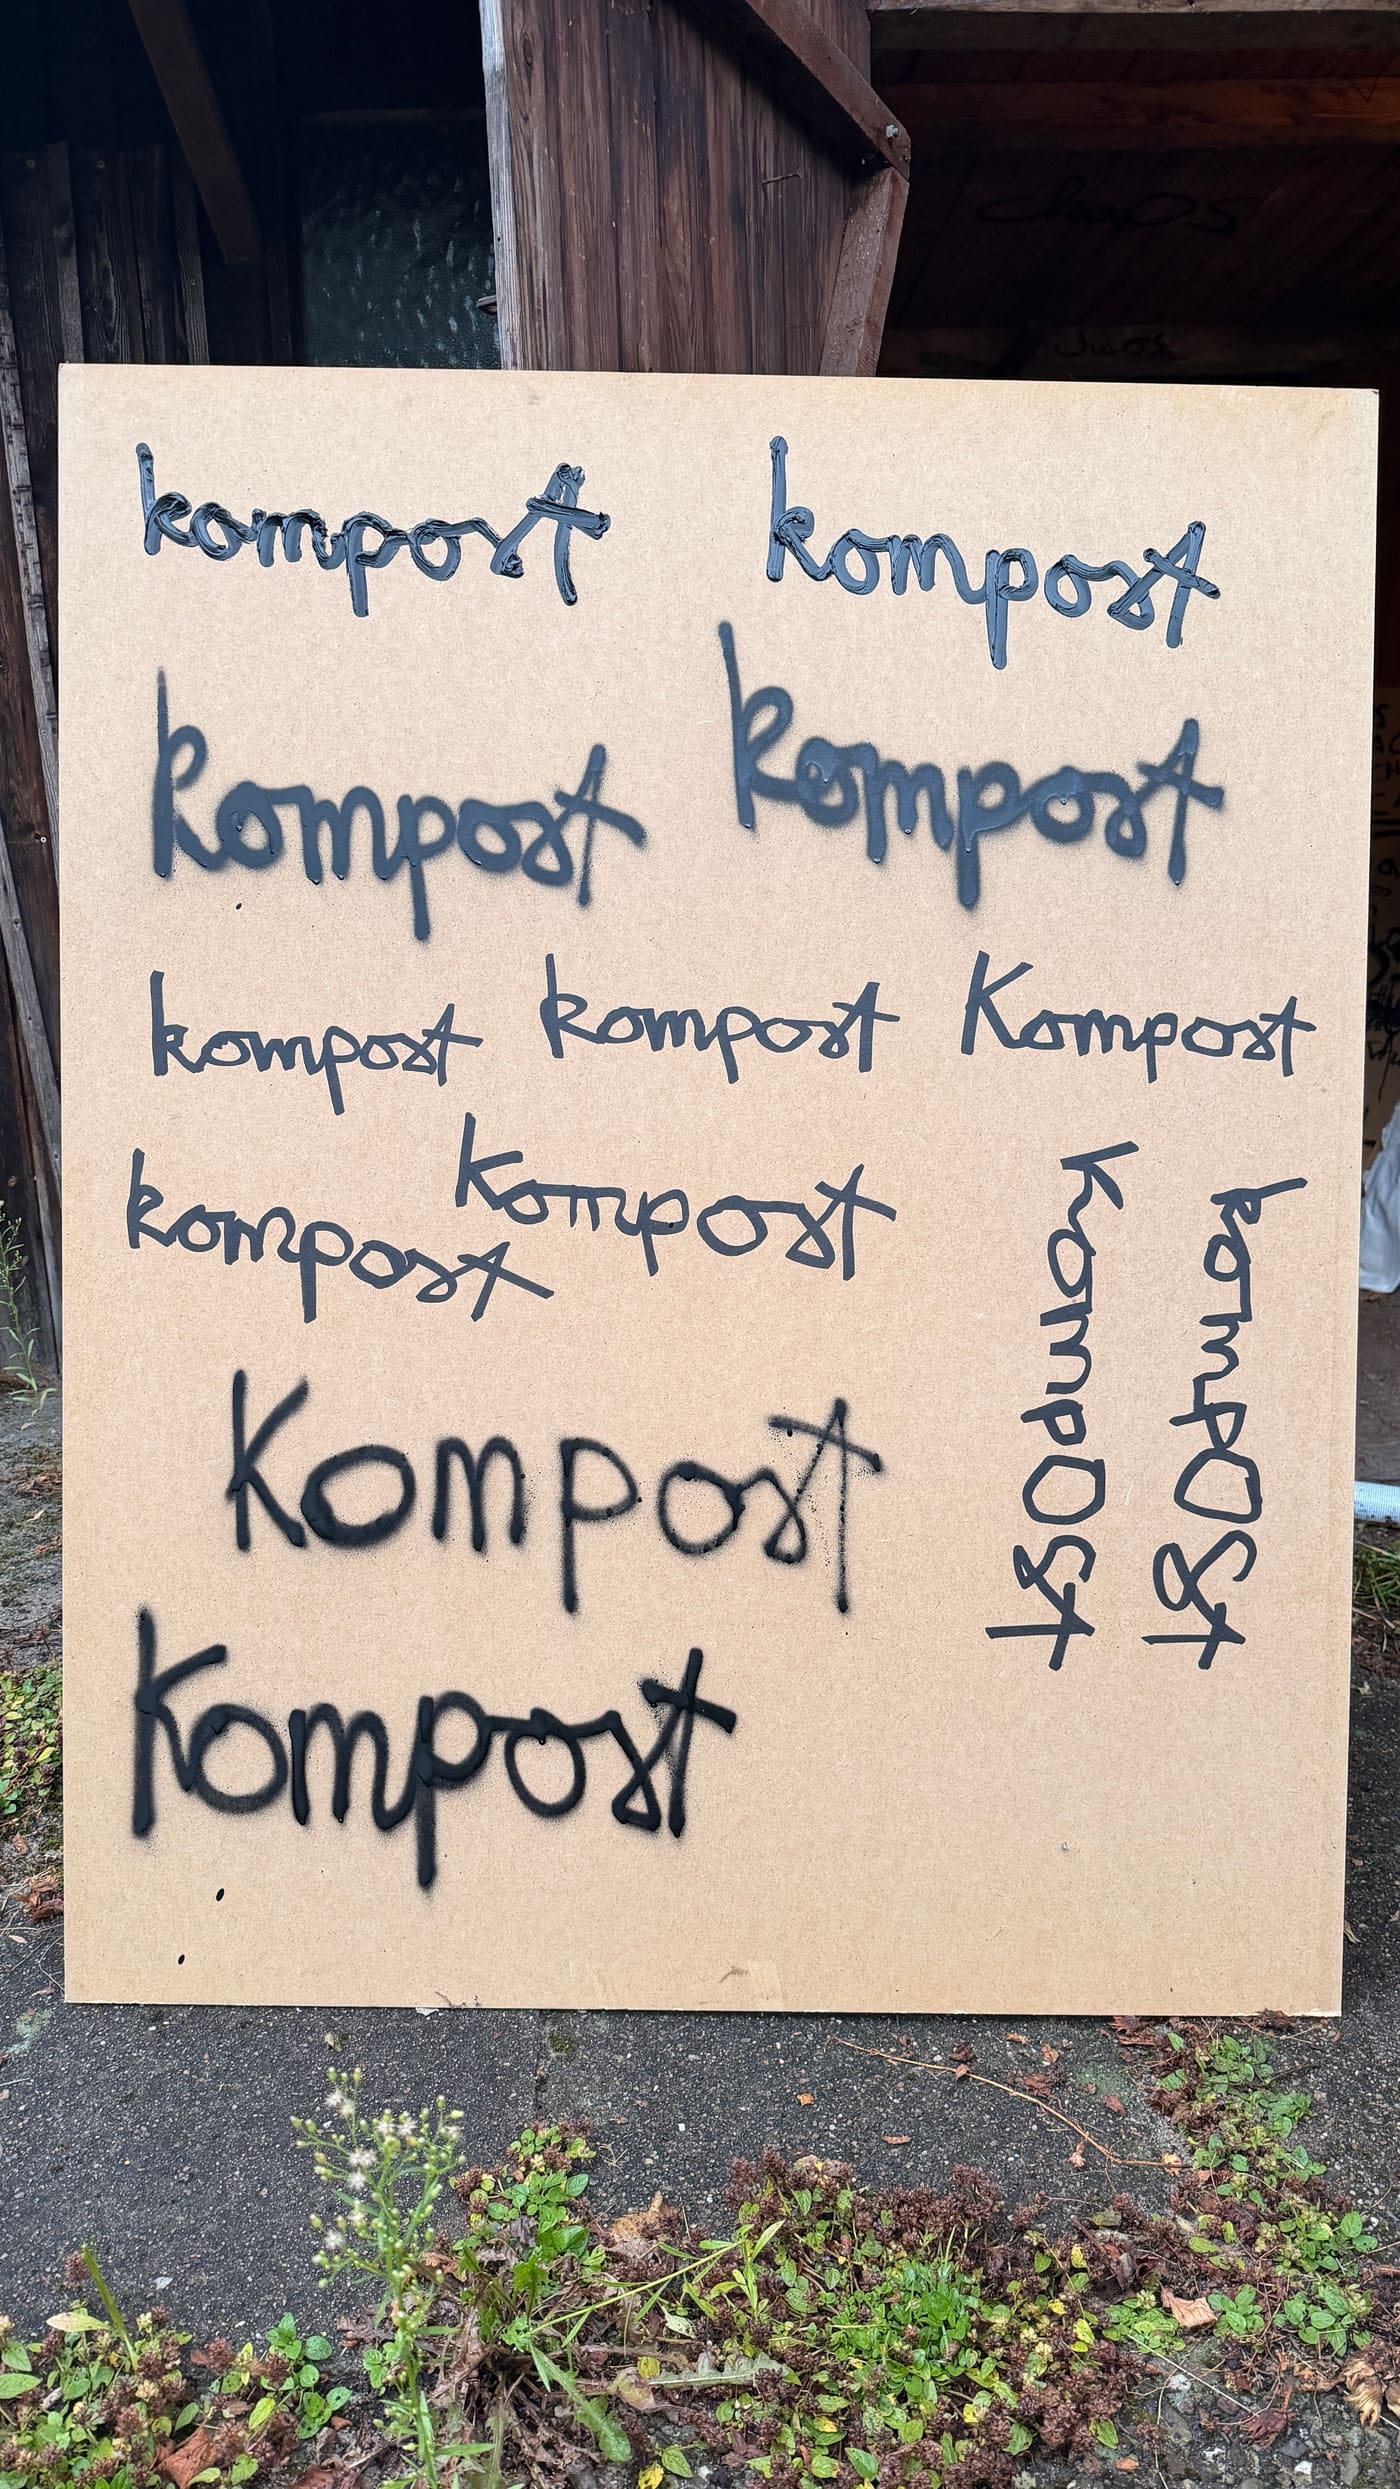 chaos
chaos
kompost kompost
kompost kompost
kompost kompost Kompost
kompost kompost
kompost kompost
Kompost
Kompost